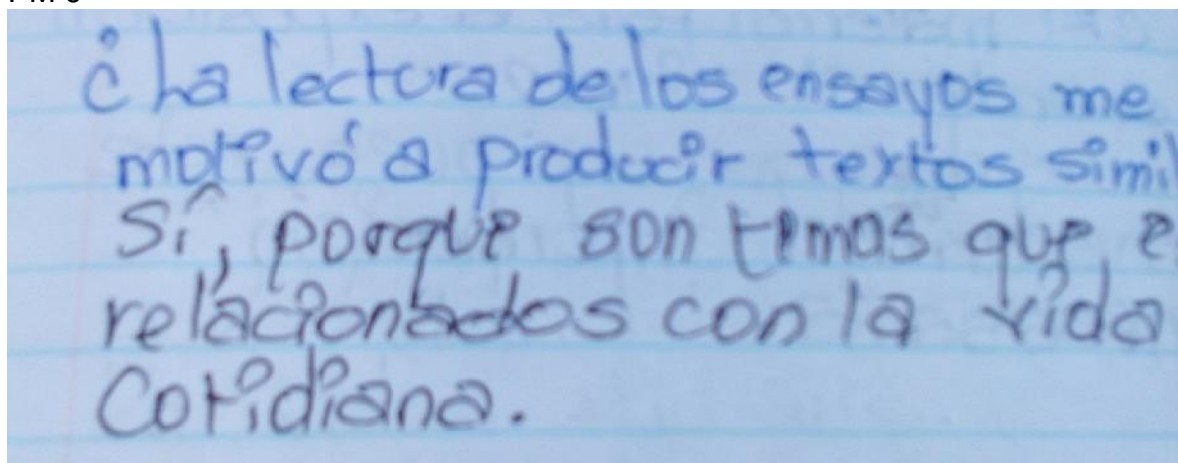 ¿La lectura de los ensayos me
motivó a producir textos simil
Sí, porque son temas que e
relacionados con la vida
Cotidiana.